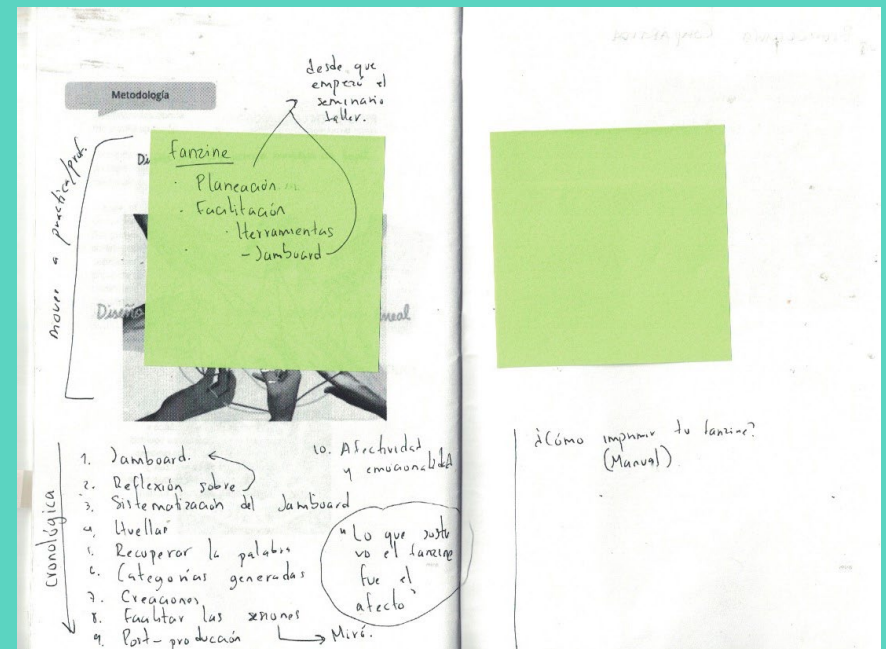 desde que
empezó el
seminario
taller.
Metodología
mover a practica/prof.
Di
fanzine
· Planeación
· Facilitación
· Herramientas
- Jamboard
Diseño
neal
Cronológica
1. Jamboard.
2. Reflexión sobre
3. Sistematización del Jamboard
4. Huellas
5. Recuperar la palabra
6. Categorías generadas
7. Creaciones
8. Facilitar las sesiones
9. Post-producción
Miró.
10. Afectividad
y emocionalidad
"Lo que sostu
vo el fanzine
fue el
afecto"
¿Cómo imprimir tu fanzine?
(Manual)